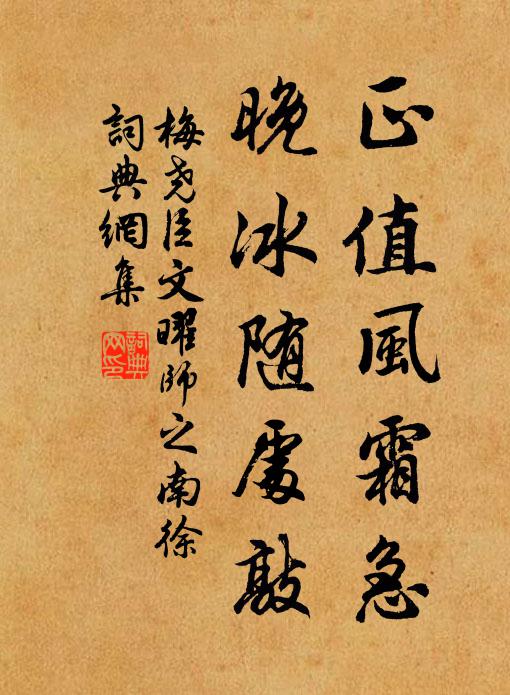 正值風霜急
晚冰随處敲
梅堯臣文曜師之南徐
詞典網集
詞典
网印